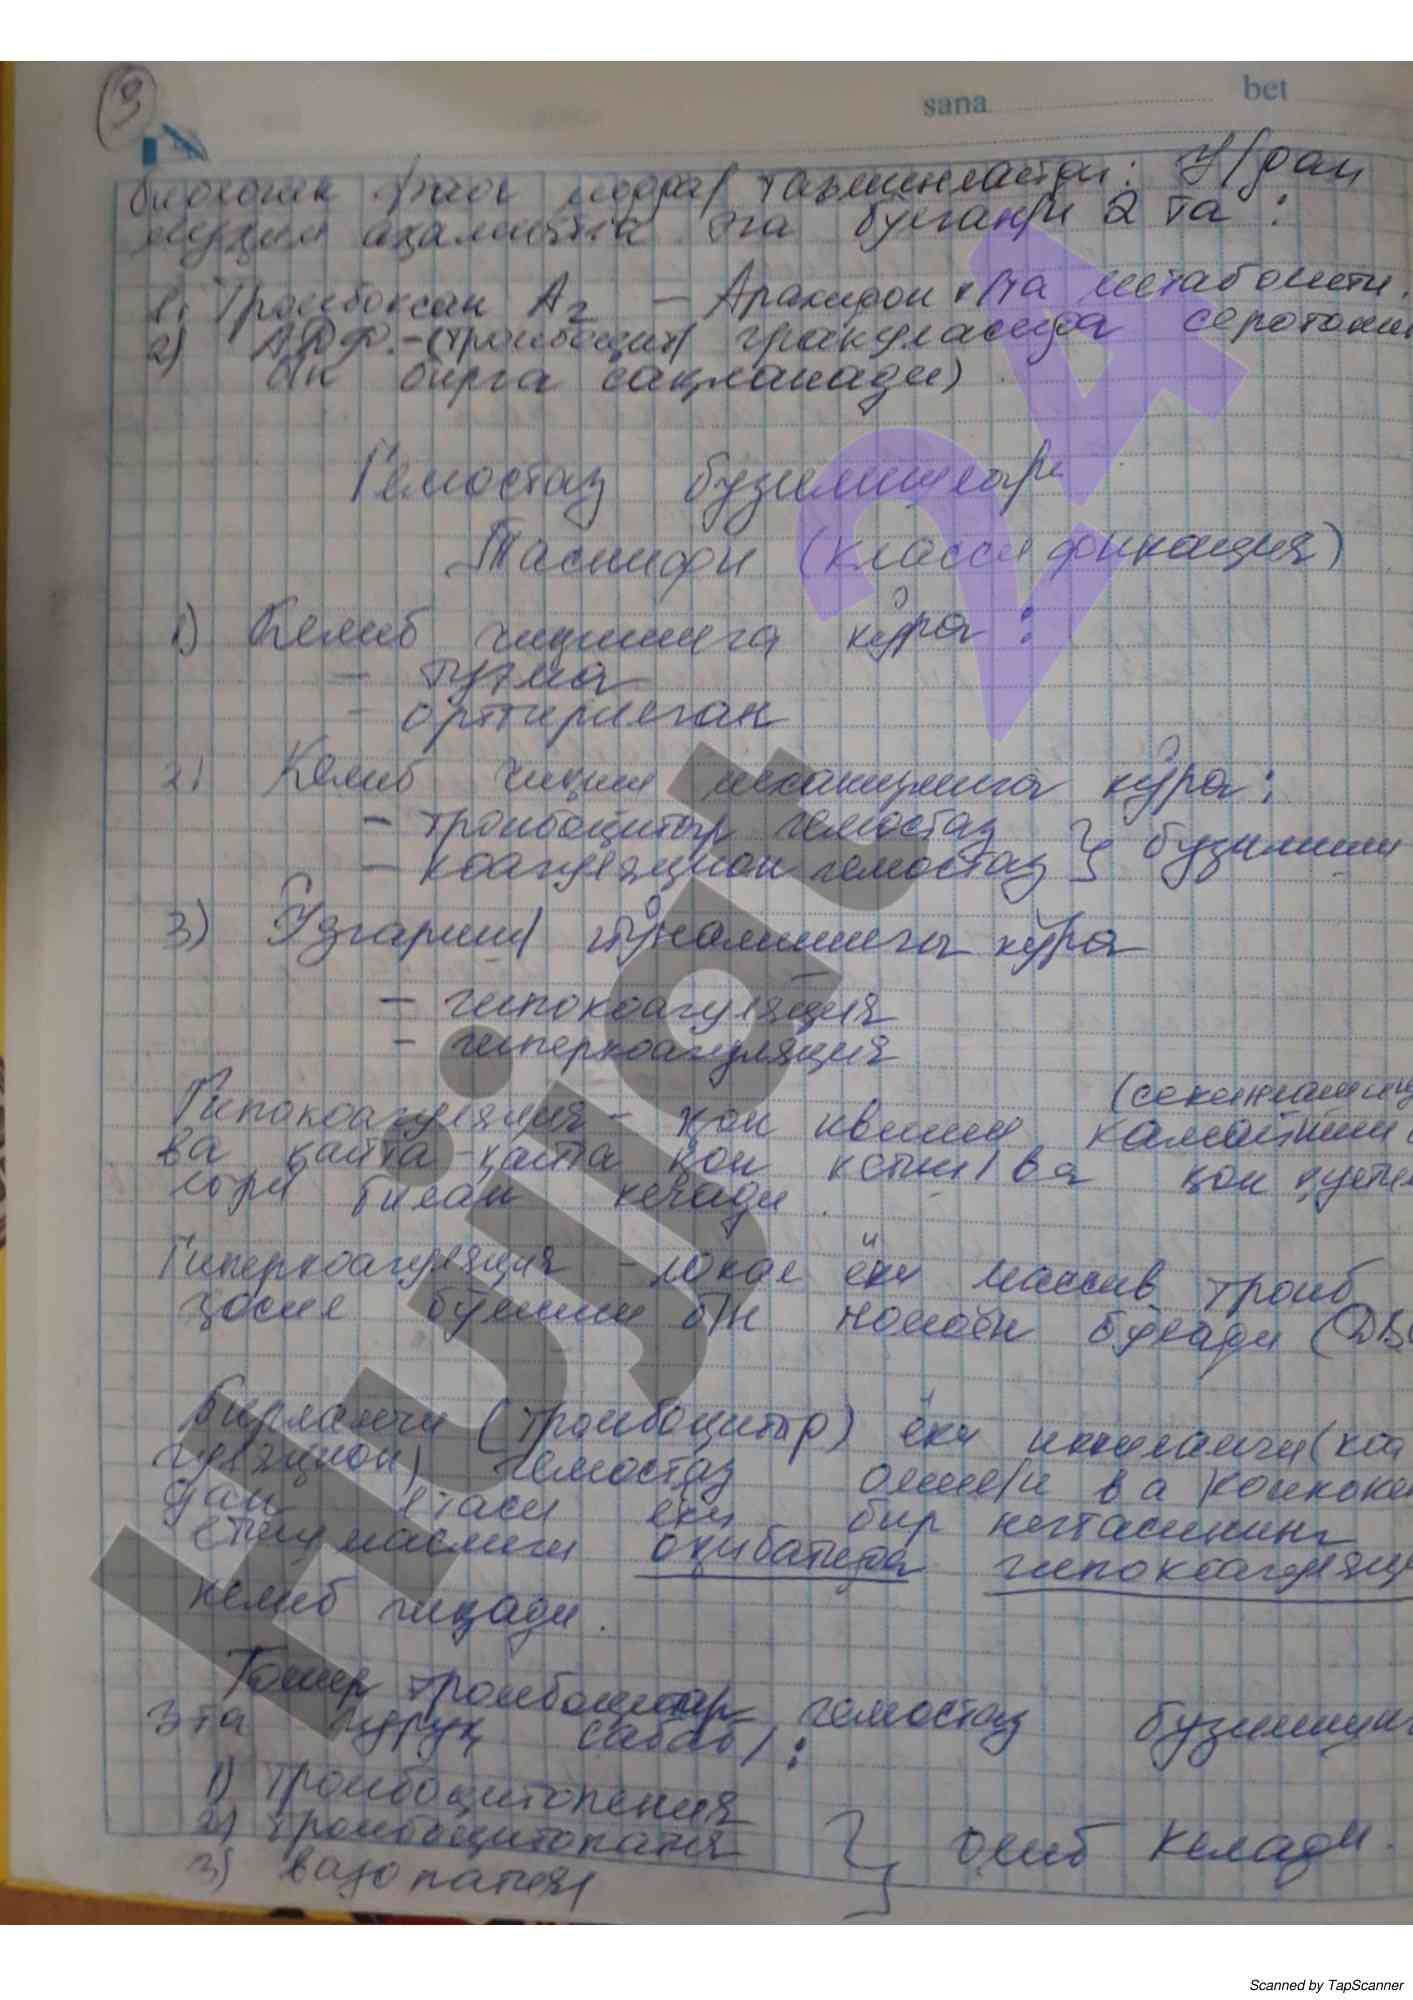 3
sana bet
биологик фаол модда/ таъминлайди: У/дан
муҳим аҳамиятга эга булган/и 2 та :
1. Тромбоксан А2 – Арахидон к/та метаболити.
2) АДФ.-(тромбоцит/ грануласида серотонин
б/н бирга сақланади)
Гемостаз бузилишлари
Таснифи (классификация)
1) Келиб чиқишига кўра :
- туғма
- орттирилган
2) Келиб чиқиш механизмига кўра :
- тромбоцитар гемостаз
- коагуляцион гемостаз } бузилиши
3) Узгариш/ йўналишига кўра
- гипокоагуляция
- гиперкоагуляция
(секинлашиш
Гипокоагуляция - қон ивиши камайиши
ва қайта-қайта қон кетиш/ ва қон қуйи
лари билан кечади.
Гиперкоагуляция - локал ёки массив тромб
ҳосил бўлиши б/н намоён бўлади (ДВС
Бирламчи (тромбоцитар) ёки иккиламчи (коа
гуляцион) гемостаз омил/и ва
дан ёки бир нечтасининг
етишмаслиги оқибатида гипокоагуляция
келиб чиқади.
Томир тромбоцитар гемостаз бузилишини
3 та гуруҳ сабаб/ :
1) Тромбоцитопения
2) тромбоцитопатия
3) вазопатия/ } олиб келади.
Hujjat 24
Scanned by TapScanner